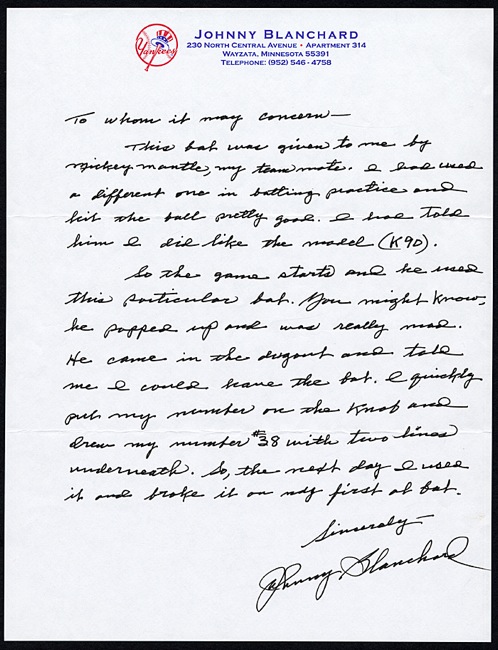 Yankees
JOHNNY BLANCHARD
230 NORTH CENTRAL AVENUE • APARTMENT 314
WAYZATA, MINNESOTA 55391
TELEPHONE: (952) 546 - 4758
To whom it may concern—
This bat was given to me by
Mickey mantle, my team mate. I had used
a different one in batting practice and
hit the ball pretty good. I had told
him I did like the model (K9D).
So the game starts and he used
this particular bat. You might know,
he popped up and was really mad.
He came in the dugout and told
me I could have the bat. I quickly
put my number on the knob and
drew my number #38 with two lines
underneath. So, the next day I used
it and broke it on my first at bat.
Sincerely—
Johnny Blanchard